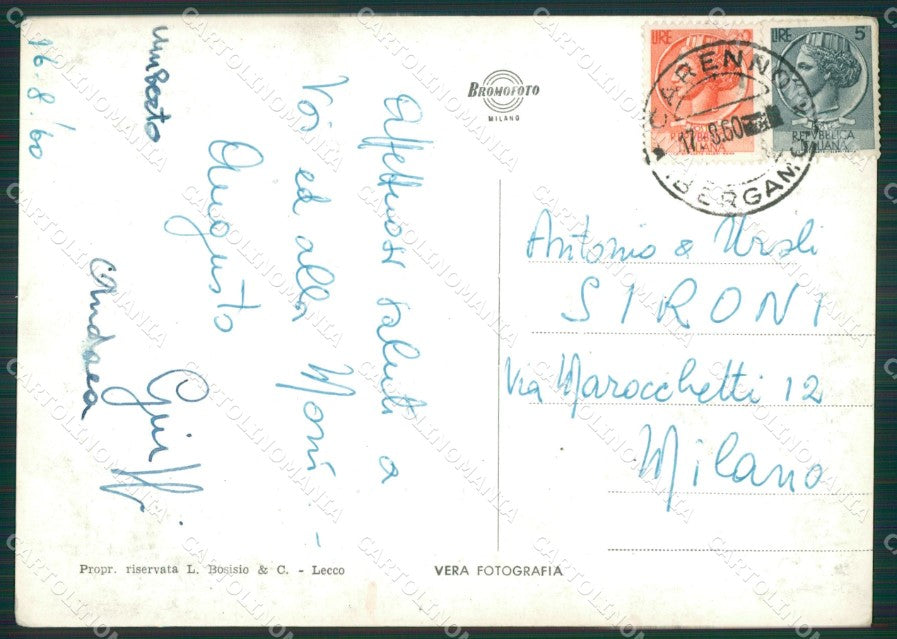 16.8.60
Affettuosi saluti a
Voi ed alla Moni -
Augusto
Umberto
Andrea
BROMOFOTO
MILANO
LIRE
LIRE 5
REPVBBLICA
ITALIANA
REPVBBLICA
ITALIANA
CARENNO
17.8.60
BERGAMO
Antonio & Ursoli
SIRONI
Via Marocchetti 12
Milano
Propr. riservata L. Bosisio & C. - Lecco
VERA FOTOGRAFIA
CARTOLINOMANIA